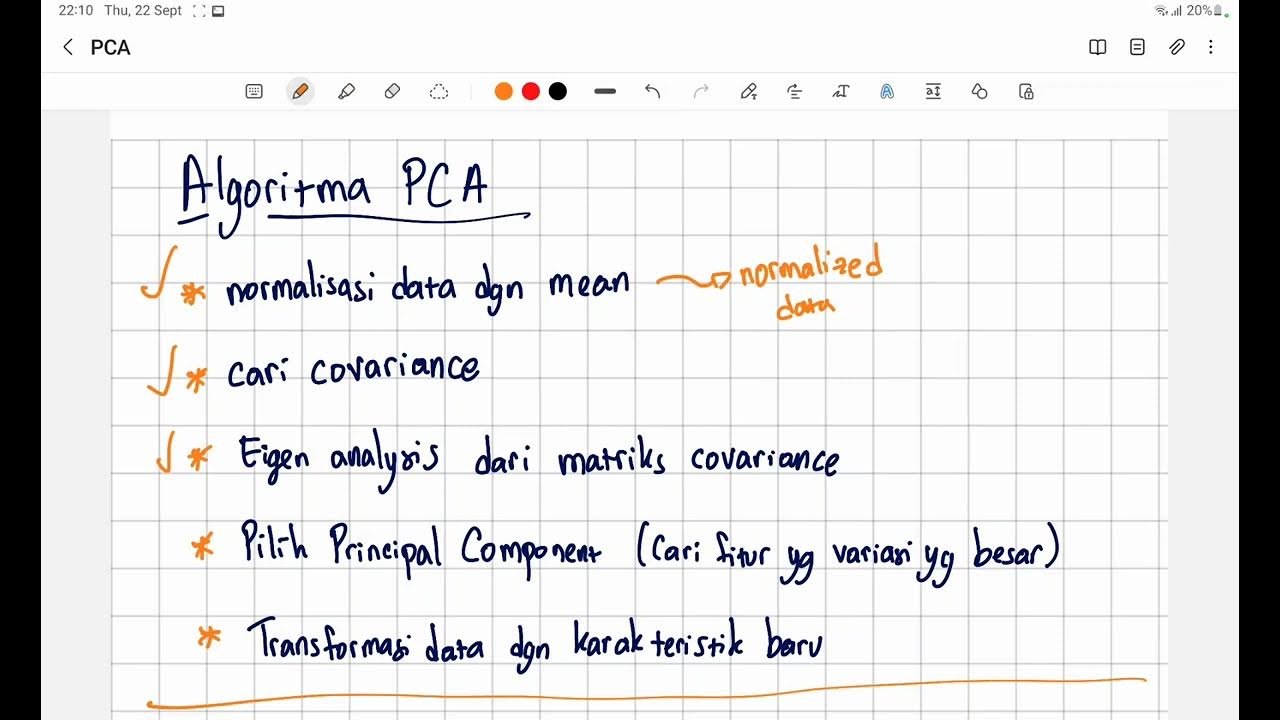 22:10 Thu, 22 Sept
20%
PCA
Algoritma PCA
* normalisasi data dgn mean → normalized
data
* cari covariance
* Eigen analysis dari matriks covariance
* Pilih Principal Component (Cari fitur yg variasi yg besar)
* Transformasi data dgn karakteristik baru